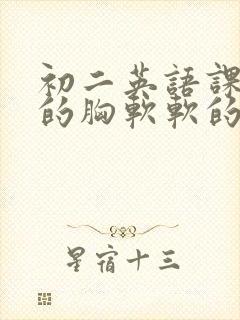 初二英語課
的胸軟軟的
星宿十三